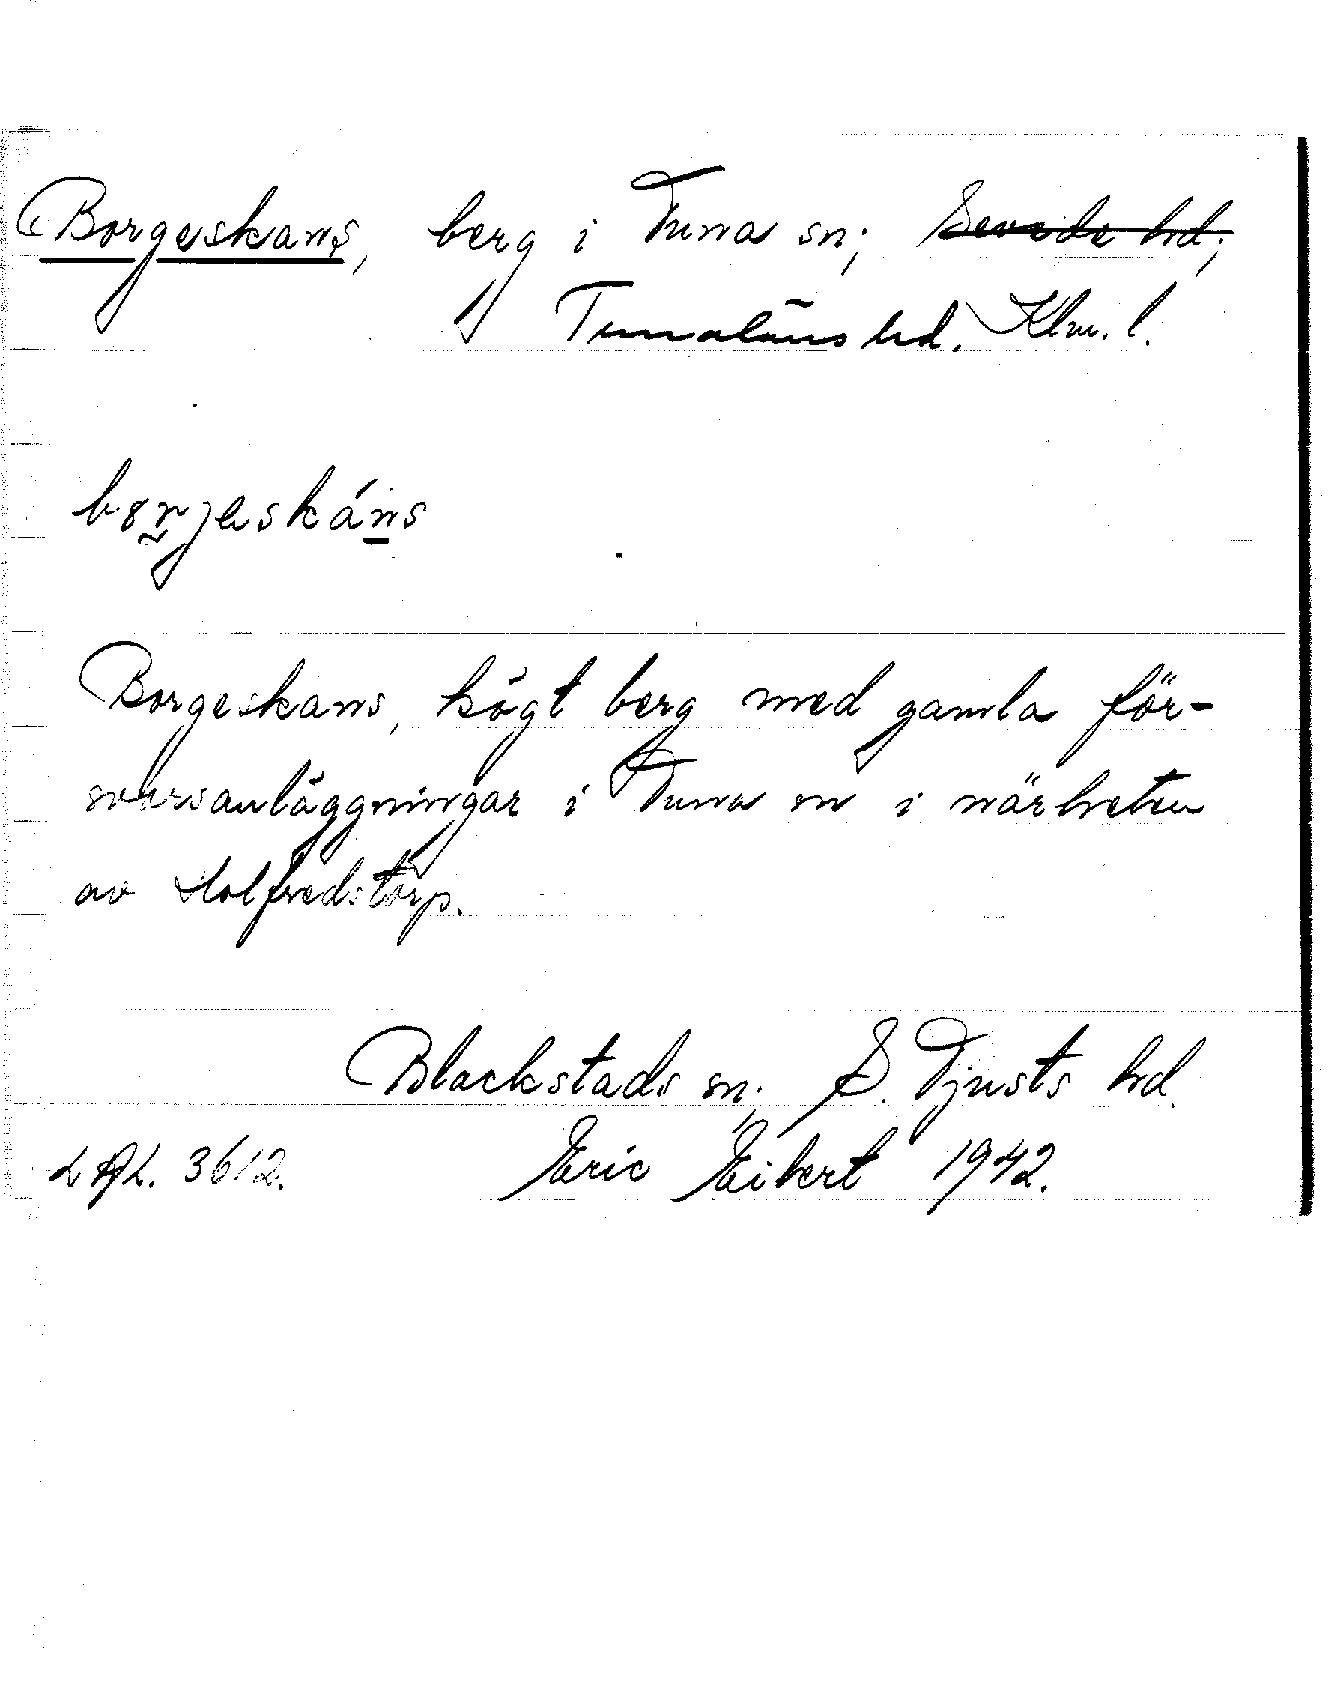 Borgeskans, berg i Tuna sn; Sevede hd;
Tunaläns hd. Klm. l.
borjeskáns
Borgeskans, högt berg med gamla för-
svarsanläggningar i Tuna sn i närheten
av Holfredstorp.
Blackstads sn; S. Tjusts hd.
3612. Eric Eibert 1942.